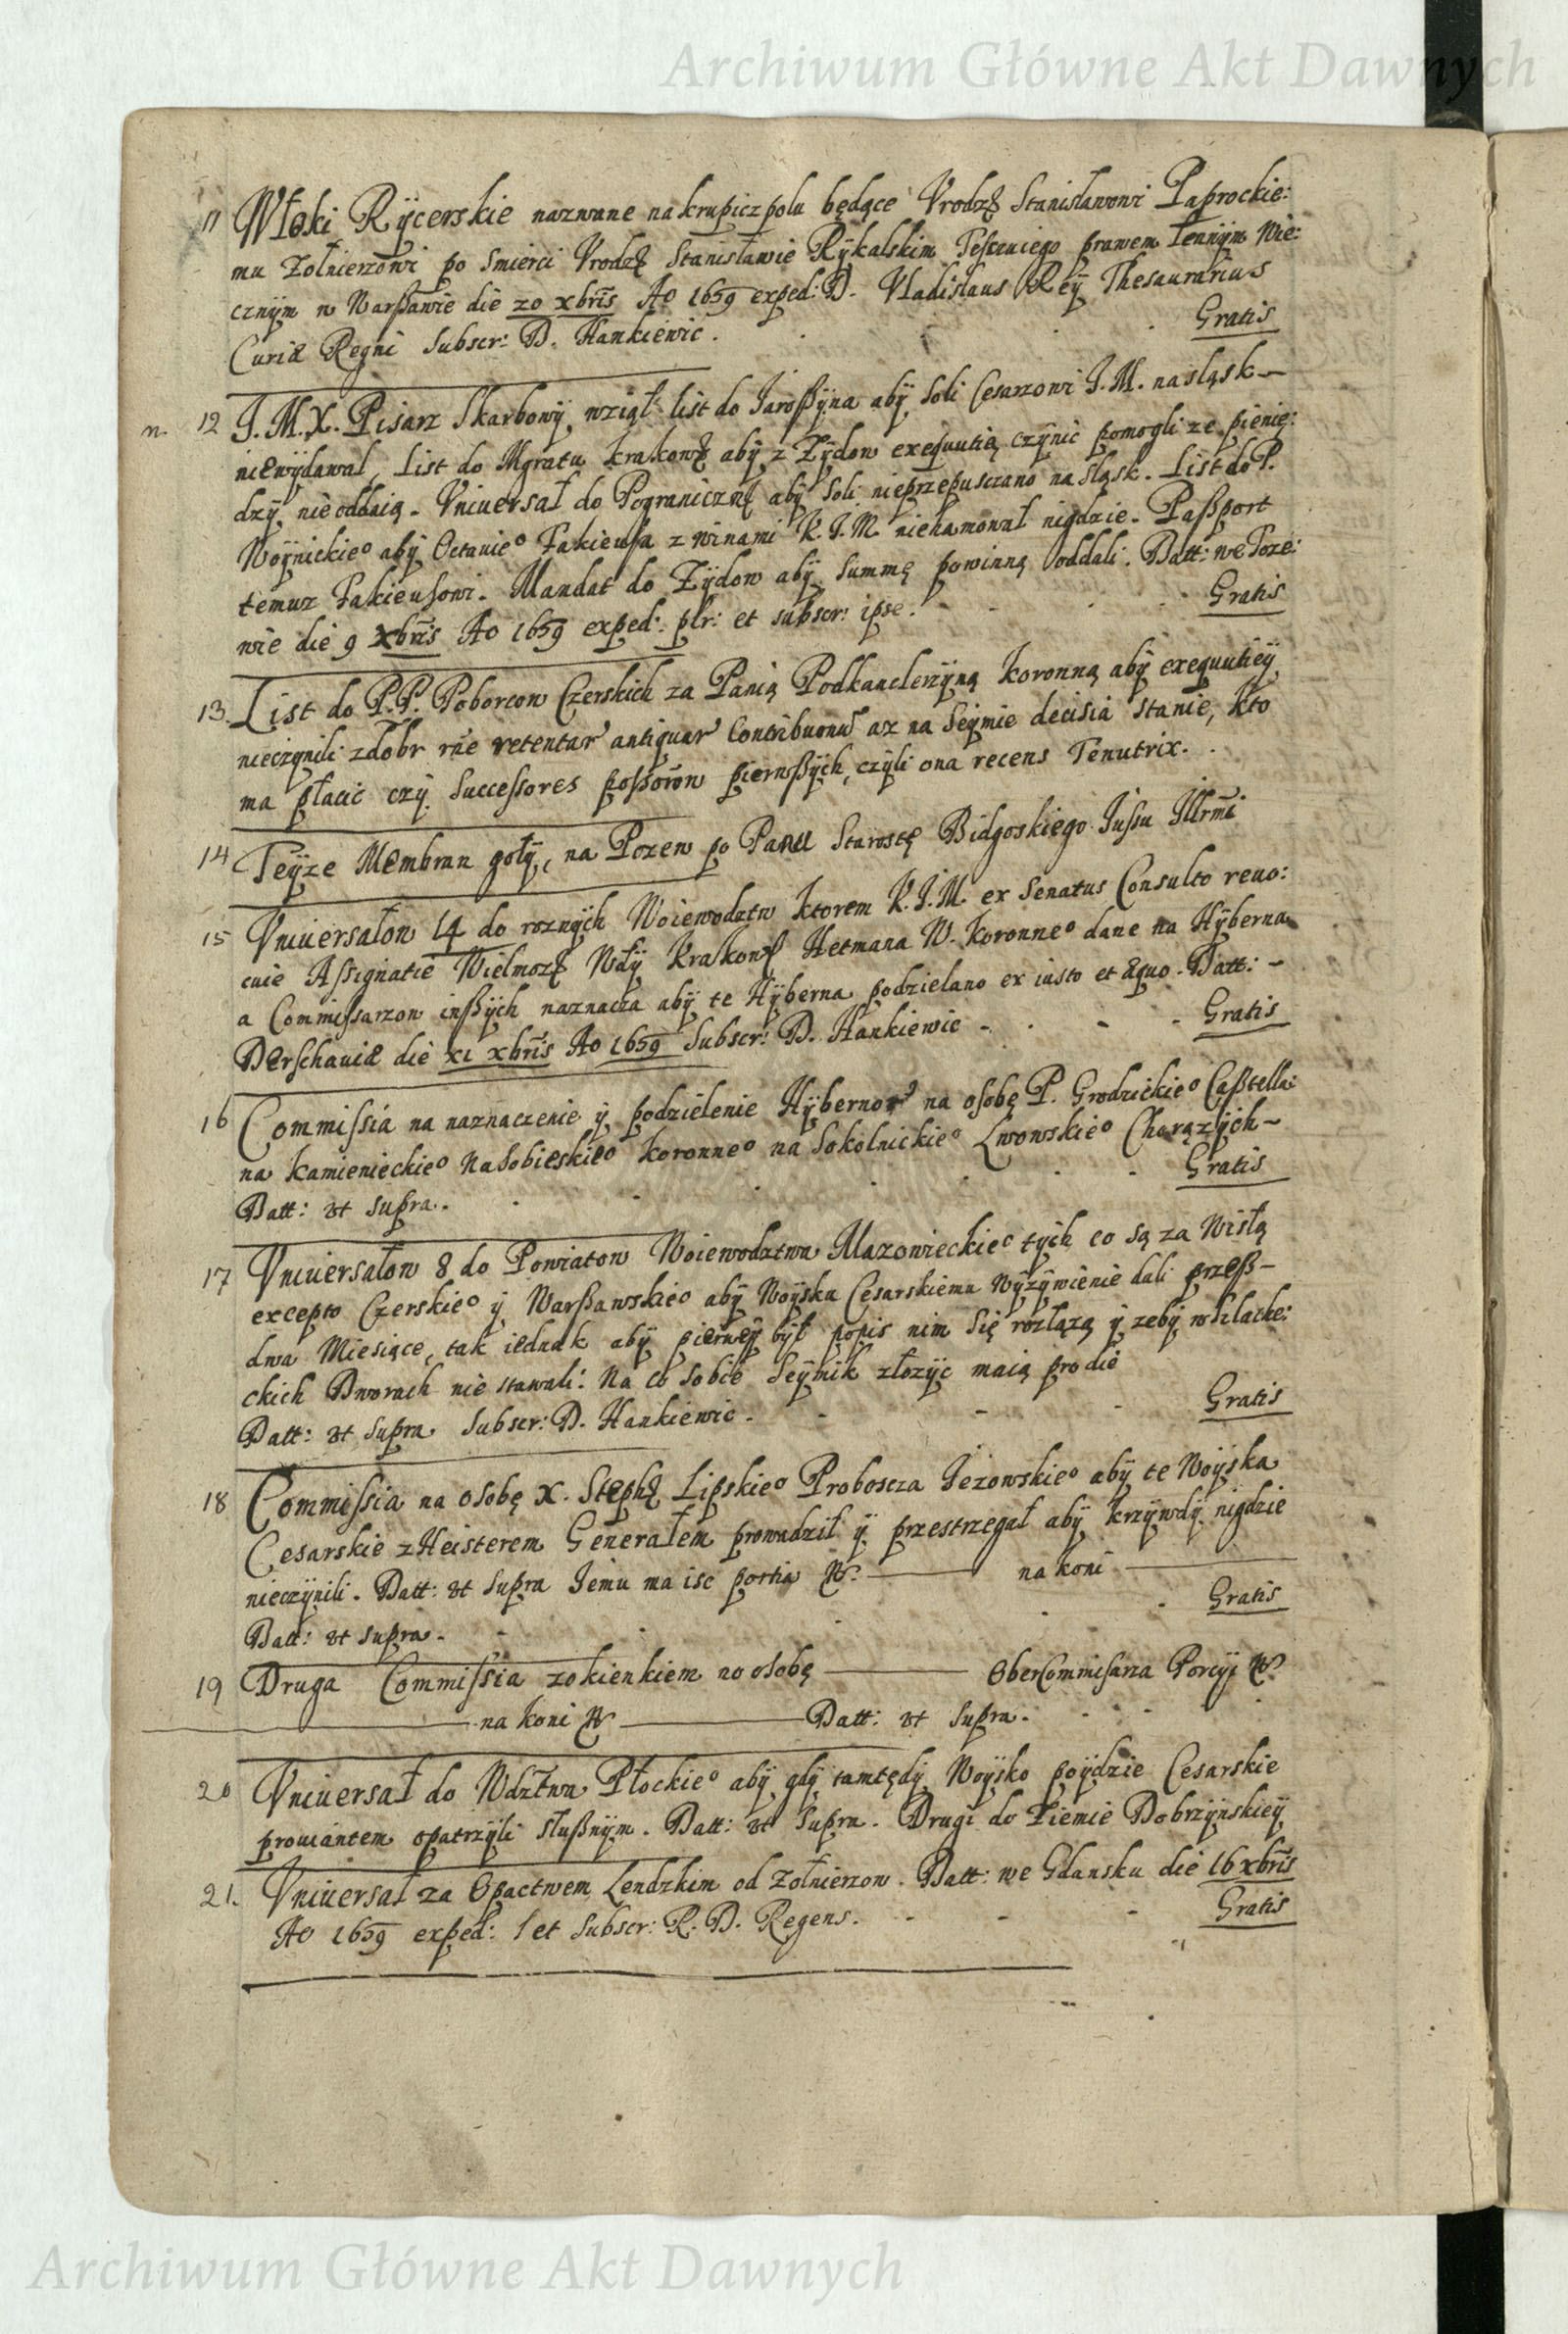 Archiwum Główne Akt Dawnych
11 Włoki Rycerskie nazwane na krupicz polu będące Vrodz. Stanisławowi Paprockie:
mu Zołnierzowi po Smierci Vrodz. Stanisławie Rykalskim prawem Lennym Wie:
cznym w Warßawie die 20 xbris Ao 1659 exped: D. Vladislaus Rey Thesaurarius
Curiæ Regni Subscr: D. Hankiewic. Gratis
n. 12 J. M. X. Pisarz Skarbowy, wziął list do Jaroßyna aby Soli Cesarzowi J. M. na sląsk
niewydawał, List do Mgratu Krakow. aby z Zydow exequutią czynic pomogli ze pienię:
dzy nie oddaią. Vniversał do Pograniczny aby Soli nieprzepusczano na Sląsk. List do P.
Woynickieo aby Octavieo Fakieusa z winami K. J. M. niehamował nigdzie. Paßport
temuz Fakieusowi. Mandat do Zydow aby Summę powinną oddali. Datt: we Toze:
wie die 9 xbris Ao 1659 exped: plr: et subscr: ipse. Gratis
13. List do P. P. Poborcow Czerskich za Panią Podkanclerzyną Koronną aby exequutiey
nieczynili z dobr rne retentar antiquar Contribuonu az na Seymie decisia stanie, kto
ma płacic czy Successores possorow pierwßych, czyli ona recens Tenutrix.
14 Teyze Membran goły, na Pozew po Panu Starostę Bidgoskiego Jussu Illrmi
15 Vniversałow 14 do roznych Woiewodztw ktorem K. J. M. ex Senatus Consulto revo:
cuie Assignatie Wielmoz. Wdy Krakow. Hetmana W. Koronneo dane na Hyberna
a Commissarzow inßych naznacza aby te Hyberna podzielano ex iusto et æquo. Datt:
Derschaviæ die xi xbris Ao 1659 Subscr: D. Hankiewic Gratis
16 Commissia na naznaczenie y podzielenie Hybernor na osobę P. Grodzickieo Castella:
na Kamienieckieo Na Sobieskieo Koronneo na Sokolnickieo Lwowskieo Chorązych
Datt: ut supra. Gratis
17 Vniversałow 8 do Powiatow Woiewodztwa Mazowieckieo tych co są za Wisłą
excepto Czerskieo y Warßawskieo aby Woysku Cesarskiemu wyzywienie dali przeß
dwa Miesiące, tak iednak aby pierwey był popis nim się rozłązą y zeby w Szlache:
ckich Dworach nie stawali. Na co sobie Seymik złozyc maią pro die
Datt: ut supra Subscr: D. Hankiewic. Gratis
18 Commissia na osobę X. Steph. Lipskieo Proboscza Jezowskieo aby te Woyska
Cesarskie z Heisterem Generałem prowadził y przestrzegał aby krzywdy nigdzie
nieczynili. Datt: ut supra Jemu ma isc portia No. na koni
Datt: ut supra. Gratis
19 Druga Commissia z okienkiem na osobę OberCommissarza Porcyi No
na koni No Datt: ut supra.
20 Vniversał do Wdztwa Płockieo aby gdy tamtędy Woysko poydzie Cesarskie
prowiantem opatrzyli słußnym. Datt: ut supra. Drugi do Ziemie Dobrzynskiey
21. Vniversał za Opactwem Lendzkim od Zołnierzow. Datt: we Gdansku die 16 xbris
Ao 1659 exped: et Subscr: R. D. Regens. Gratis
Archiwum Główne Akt Dawnych